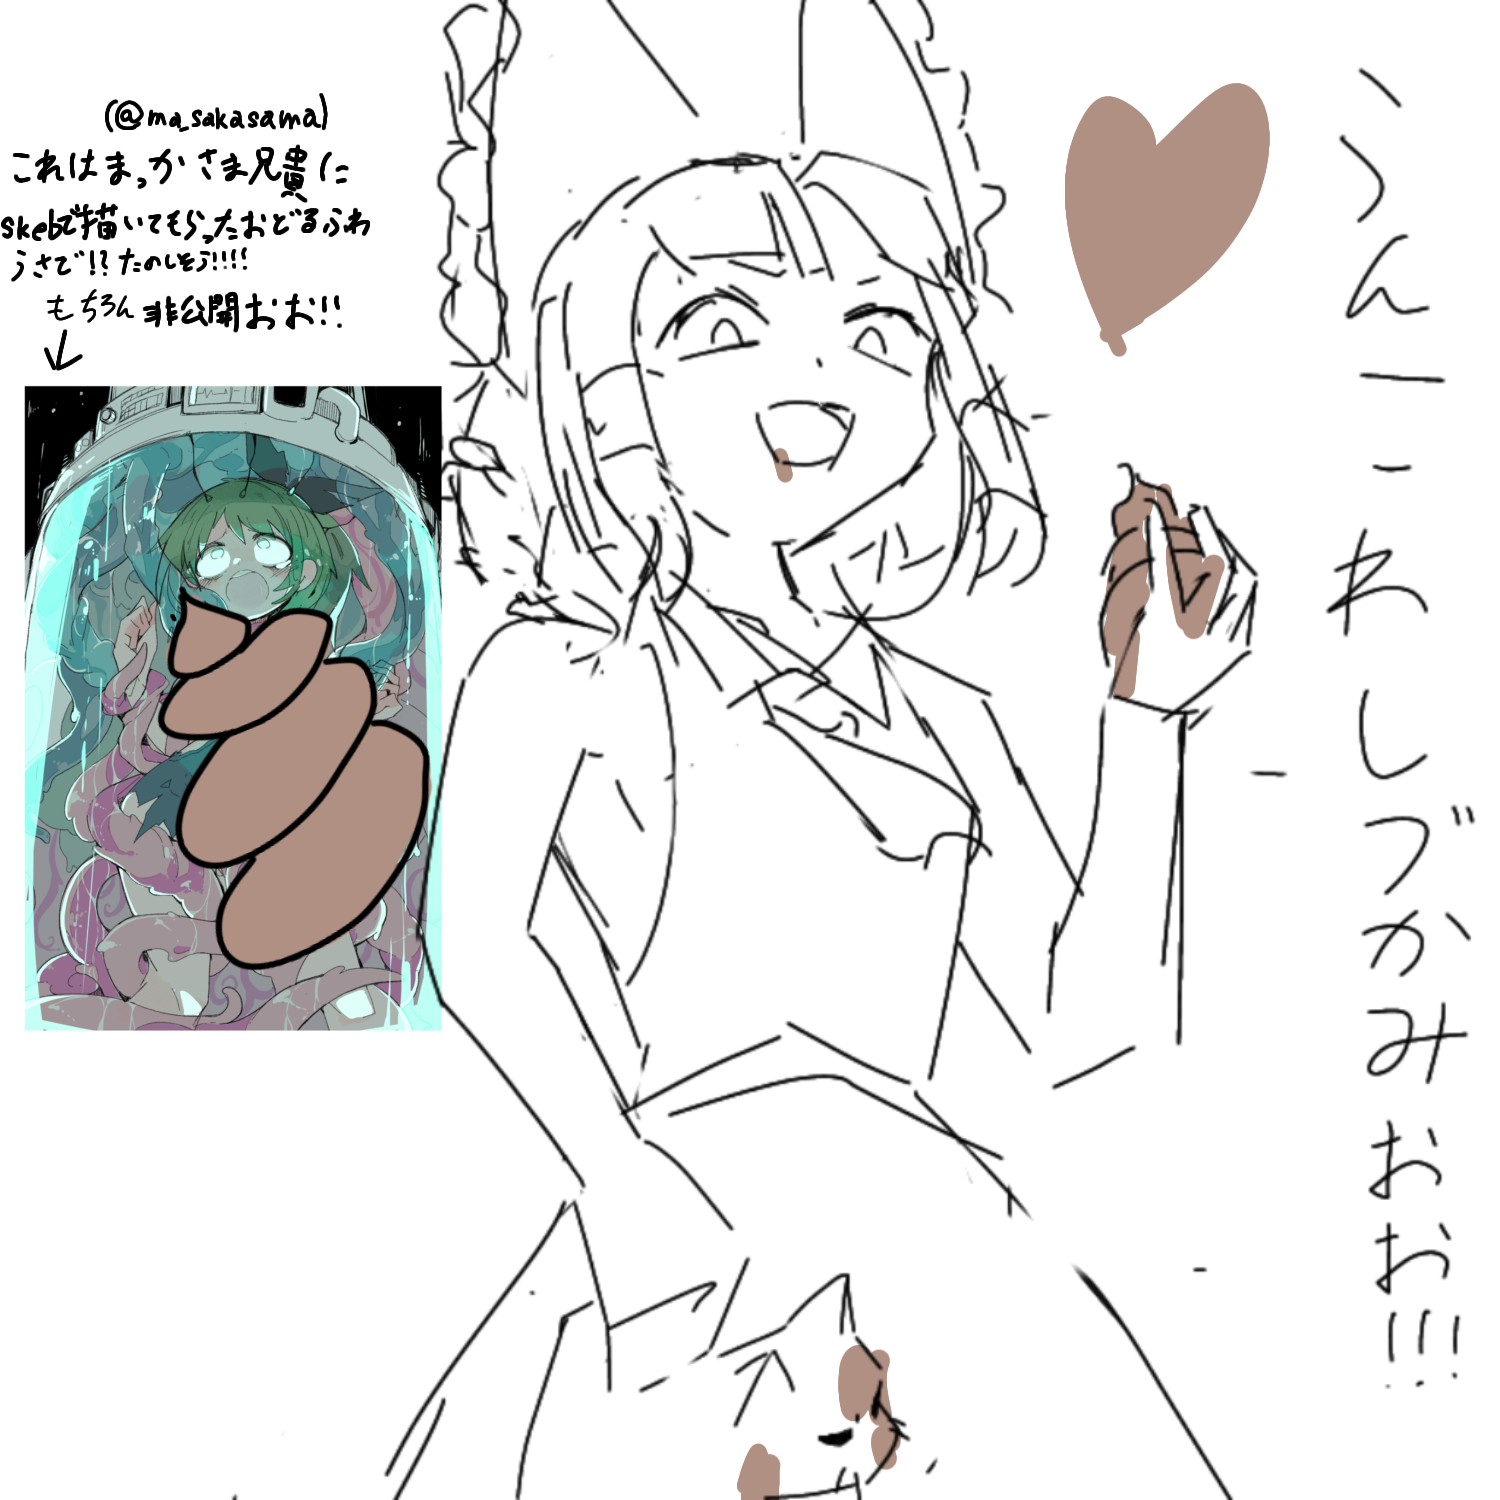 (@ma_sakasama)
これはまっかさま兄貴に
skebで描いてもらったおどるふわ
うさで!?たのしそう!!!!
もちろん非公開おお!!
うんこわしづかみおお!!!